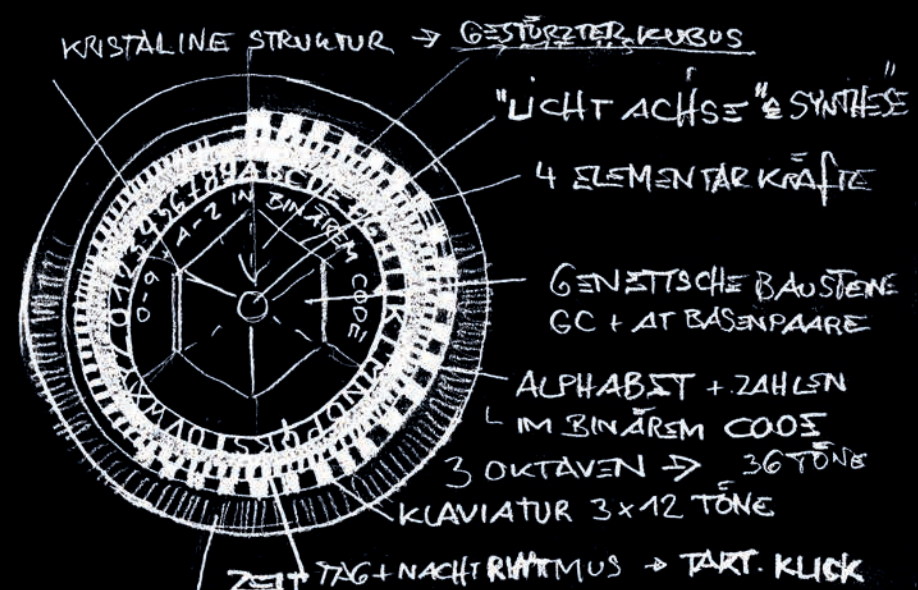 KRISTALINE STRUKTUR → GESTÜRZTER KUBUS
"LICHT ACHSE" & SYNTHESE"
4 ELEMENTARKRÄFTE
GENETISCHE BAUSTEINE
GC + AT BASENPAARE
ALPHABET + ZAHLEN
IM BINÄREM CODE
3 OKTAVEN → 36 TÖNE
KLAVIATUR 3 x 12 TÖNE
ZEIT TAG + NACHT RHYTMUS → TART. KLICK
0123456789ABCDEFGHIJKLMNOPQRSTUVWXYZ
0-9 A-Z IN BINÄREM CODE